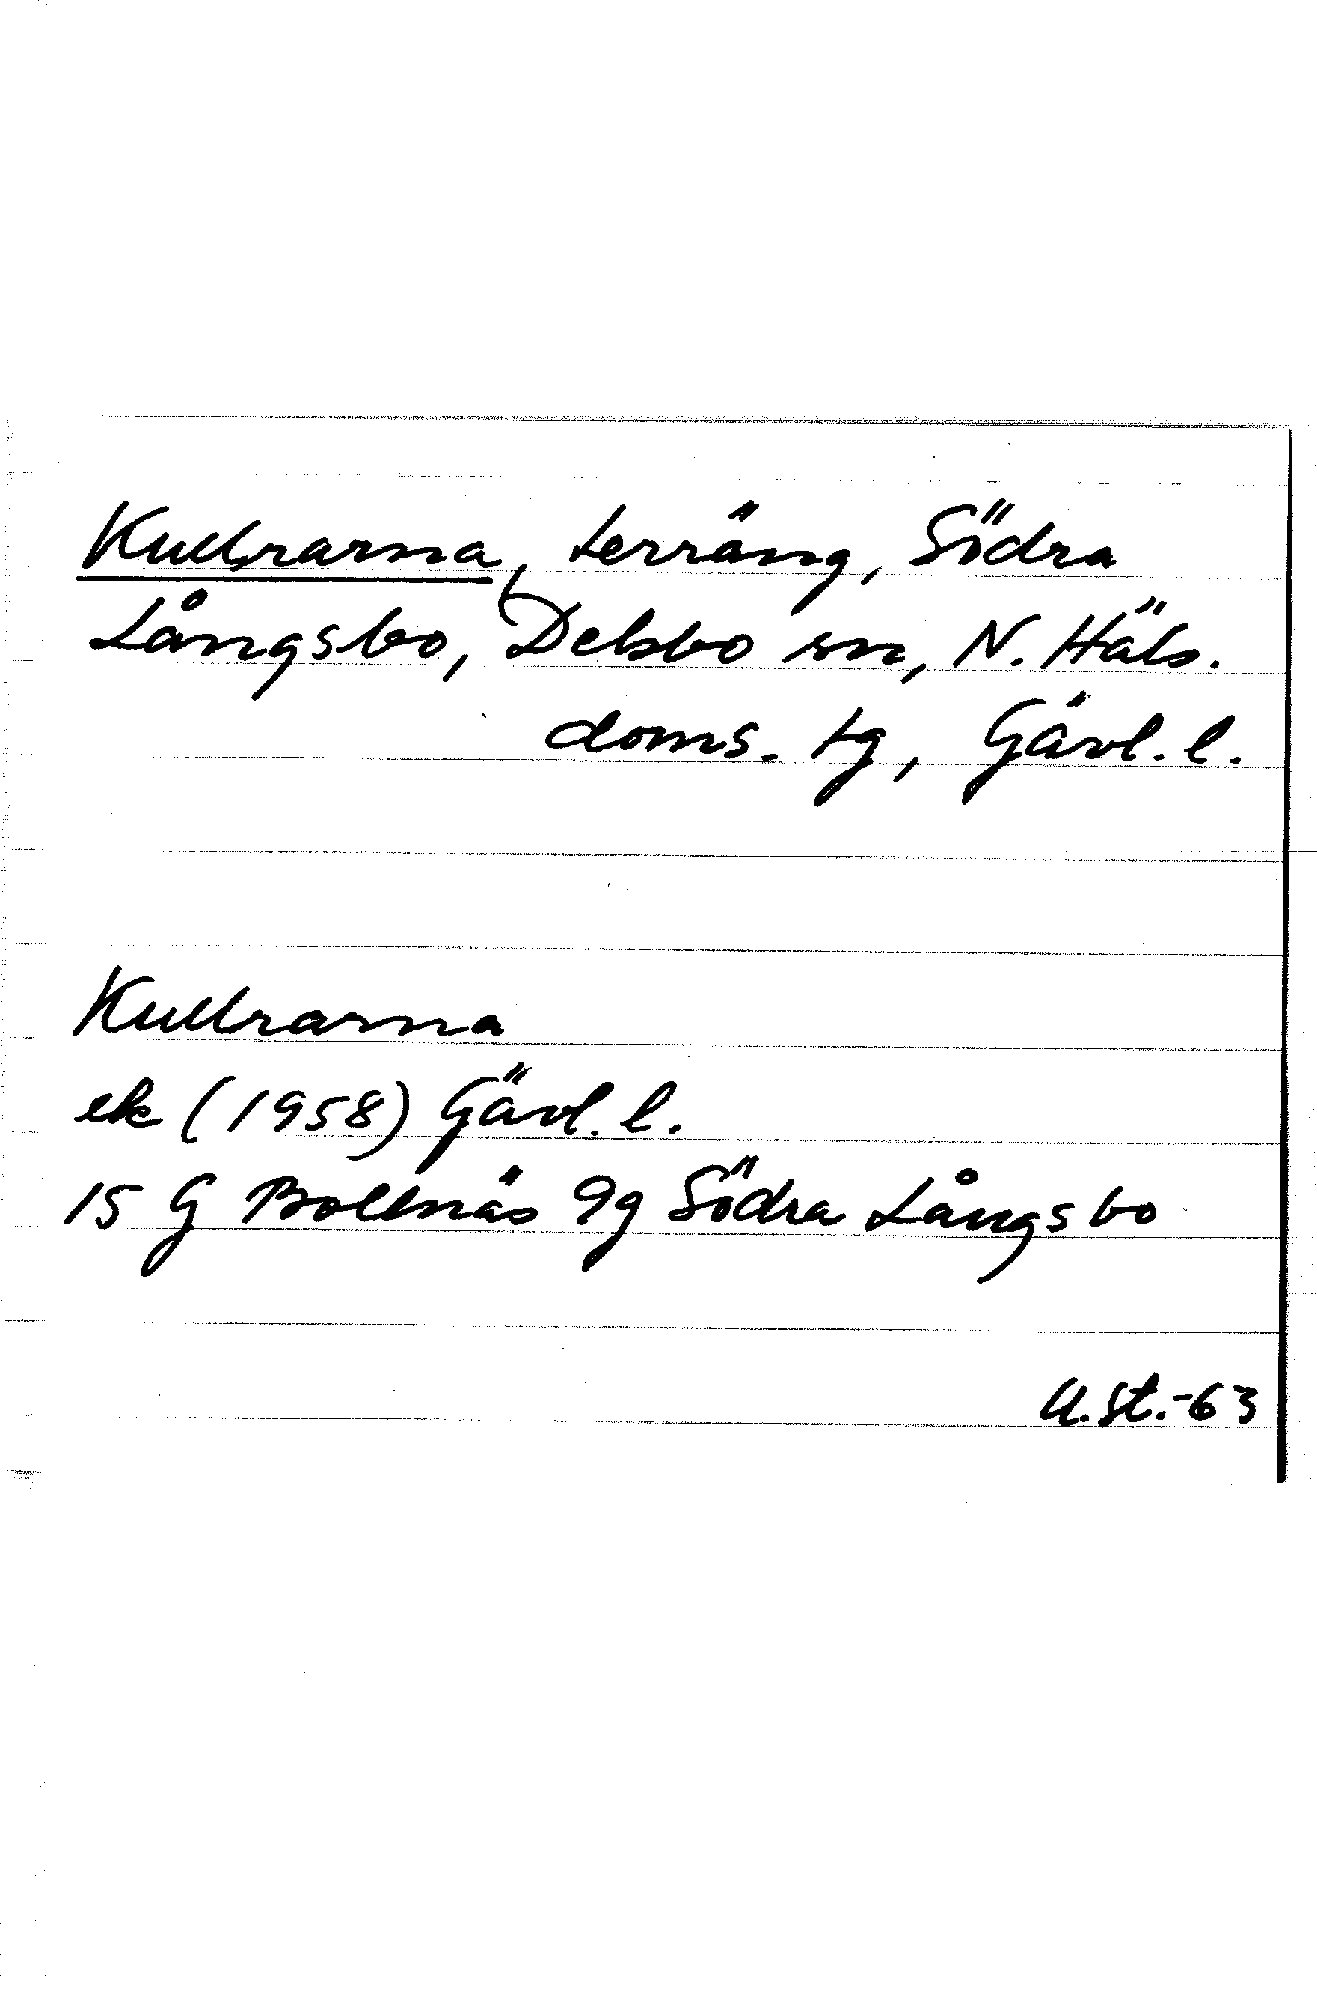 Kullrarna, terräng, Södra
Långsbo, Delsbo sn, N. Häls.
doms. tg, Gävl. l.
Kullrarna
ek (1958) Gävl. l.
15 G Bollnäs 9g Södra Långsbo
U. St.-63